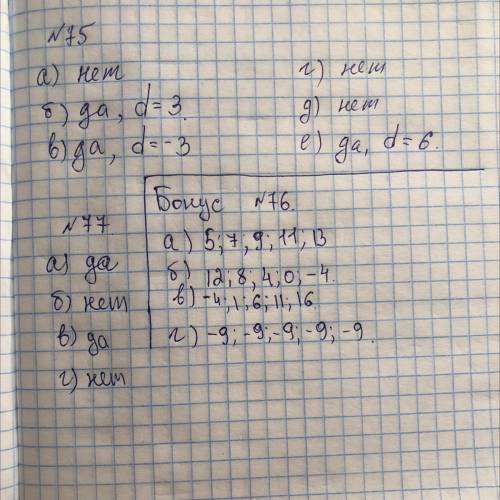 №75
а) нет
б) да, d=3.
в) да, d=-3
г) нет
д) нет
е) да, d=6.
№77.
а) да
б) нет
в) да
г) нет
Бонус №76.
а) 5; 7; 9; 11; 13
б) 12; 8; 4; 0; -4.
в) -4; 1; 6; 11; 16.
г) -9; -9; -9; -9; -9.